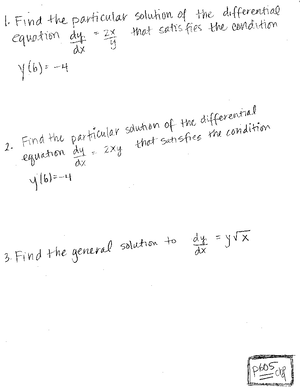 1. Find the particular solution of the differential
equation dy/dx = 2x/y that satisfies the condition
y(6) = -4
2. Find the particular solution of the differential
equation dy/dx = 2xy that satisfies the condition
y(6) = -4
3. Find the general solution to dy/dx = y√x
p605